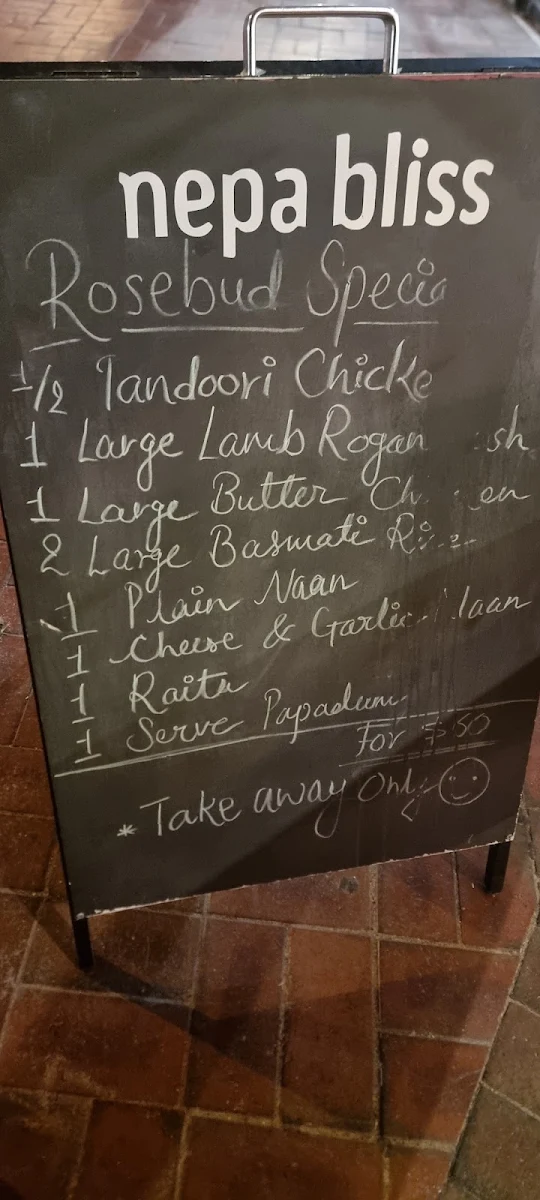 nepa bliss
Rosebud Specia
1/2 Tandoori Chicke
1 Large Lamb Rogan sh
1 Large Butter Ch en
2 Large Basmati Ri
1 Plain Naan
1 Cheese & Garlic Naan
1 Raita
1 Serve Papadum
For $50
* Take away Only